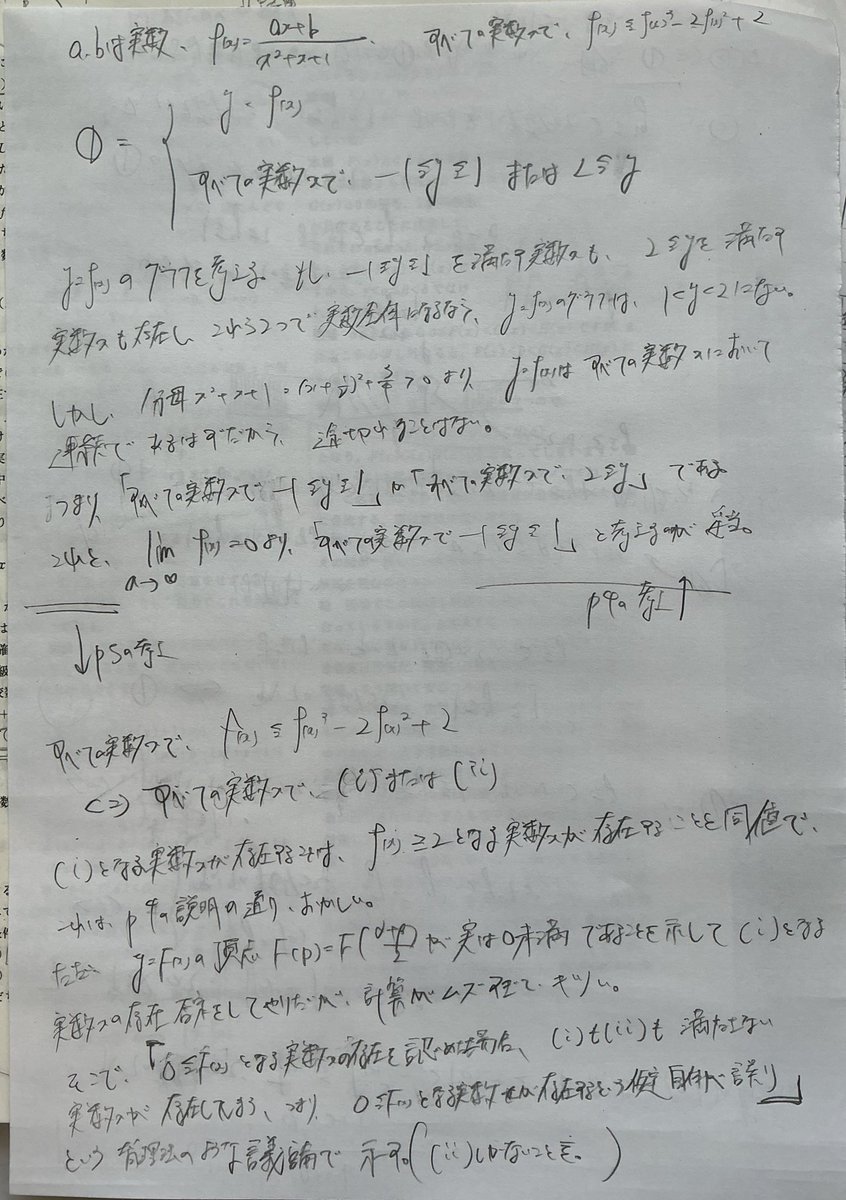 a,bは実数、f(x)=(ax+b)/(x²+x+1)、すべての実数xで、f(x)≦f(x)³-2f(x)²+2
①= { y=f(x)
すべての実数xで、-1≦y≦1 または 2≦y
y=f(x)のグラフを考える。もし、-1≦y≦1を満たす実数xも、2≦yを満たす
実数xも存在し、これら2つで実数全体になるなら、y=f(x)のグラフは、1<y<2にない。
しかし、分母x²+x+1=(x+1/2)²+3/4>0より、y=f(x)はすべての実数xにおいて
連続であるはずだから、途切れることはない。
つまり、「すべての実数xで-1≦y≦1」か「すべての実数xで、2≦y」である
これと、lim a→∞ f(x)=0より、「すべての実数xで-1≦y≦1」と考えるのが妥当。
p4の考え↑
↓p5の考え
すべての実数xで、f(x)≦f(x)³-2f(x)²+2
<=> すべての実数xで、(i)または(ii)
(i)となる実数xが存在することは、f(x)≧2となる実数xが存在することと同値で、
これは、p4の説明の通り、おかしい。
ただ、y=F(x)の頂点F(p)=F()が実は0未満であることを示して(i)となる
実数xの存在否定をしてやりたが、計算がムズすぎて、キツい。
そこで、「0≦F(x)となる実数xの存在を認めた場合、(i)も(ii)も満たさない
実数xが存在してしまう、つまり、0≦F(x)となる実数xが存在するという仮定自体が誤り」
という背理法のような議論で示す。((ii)しかないことを。)